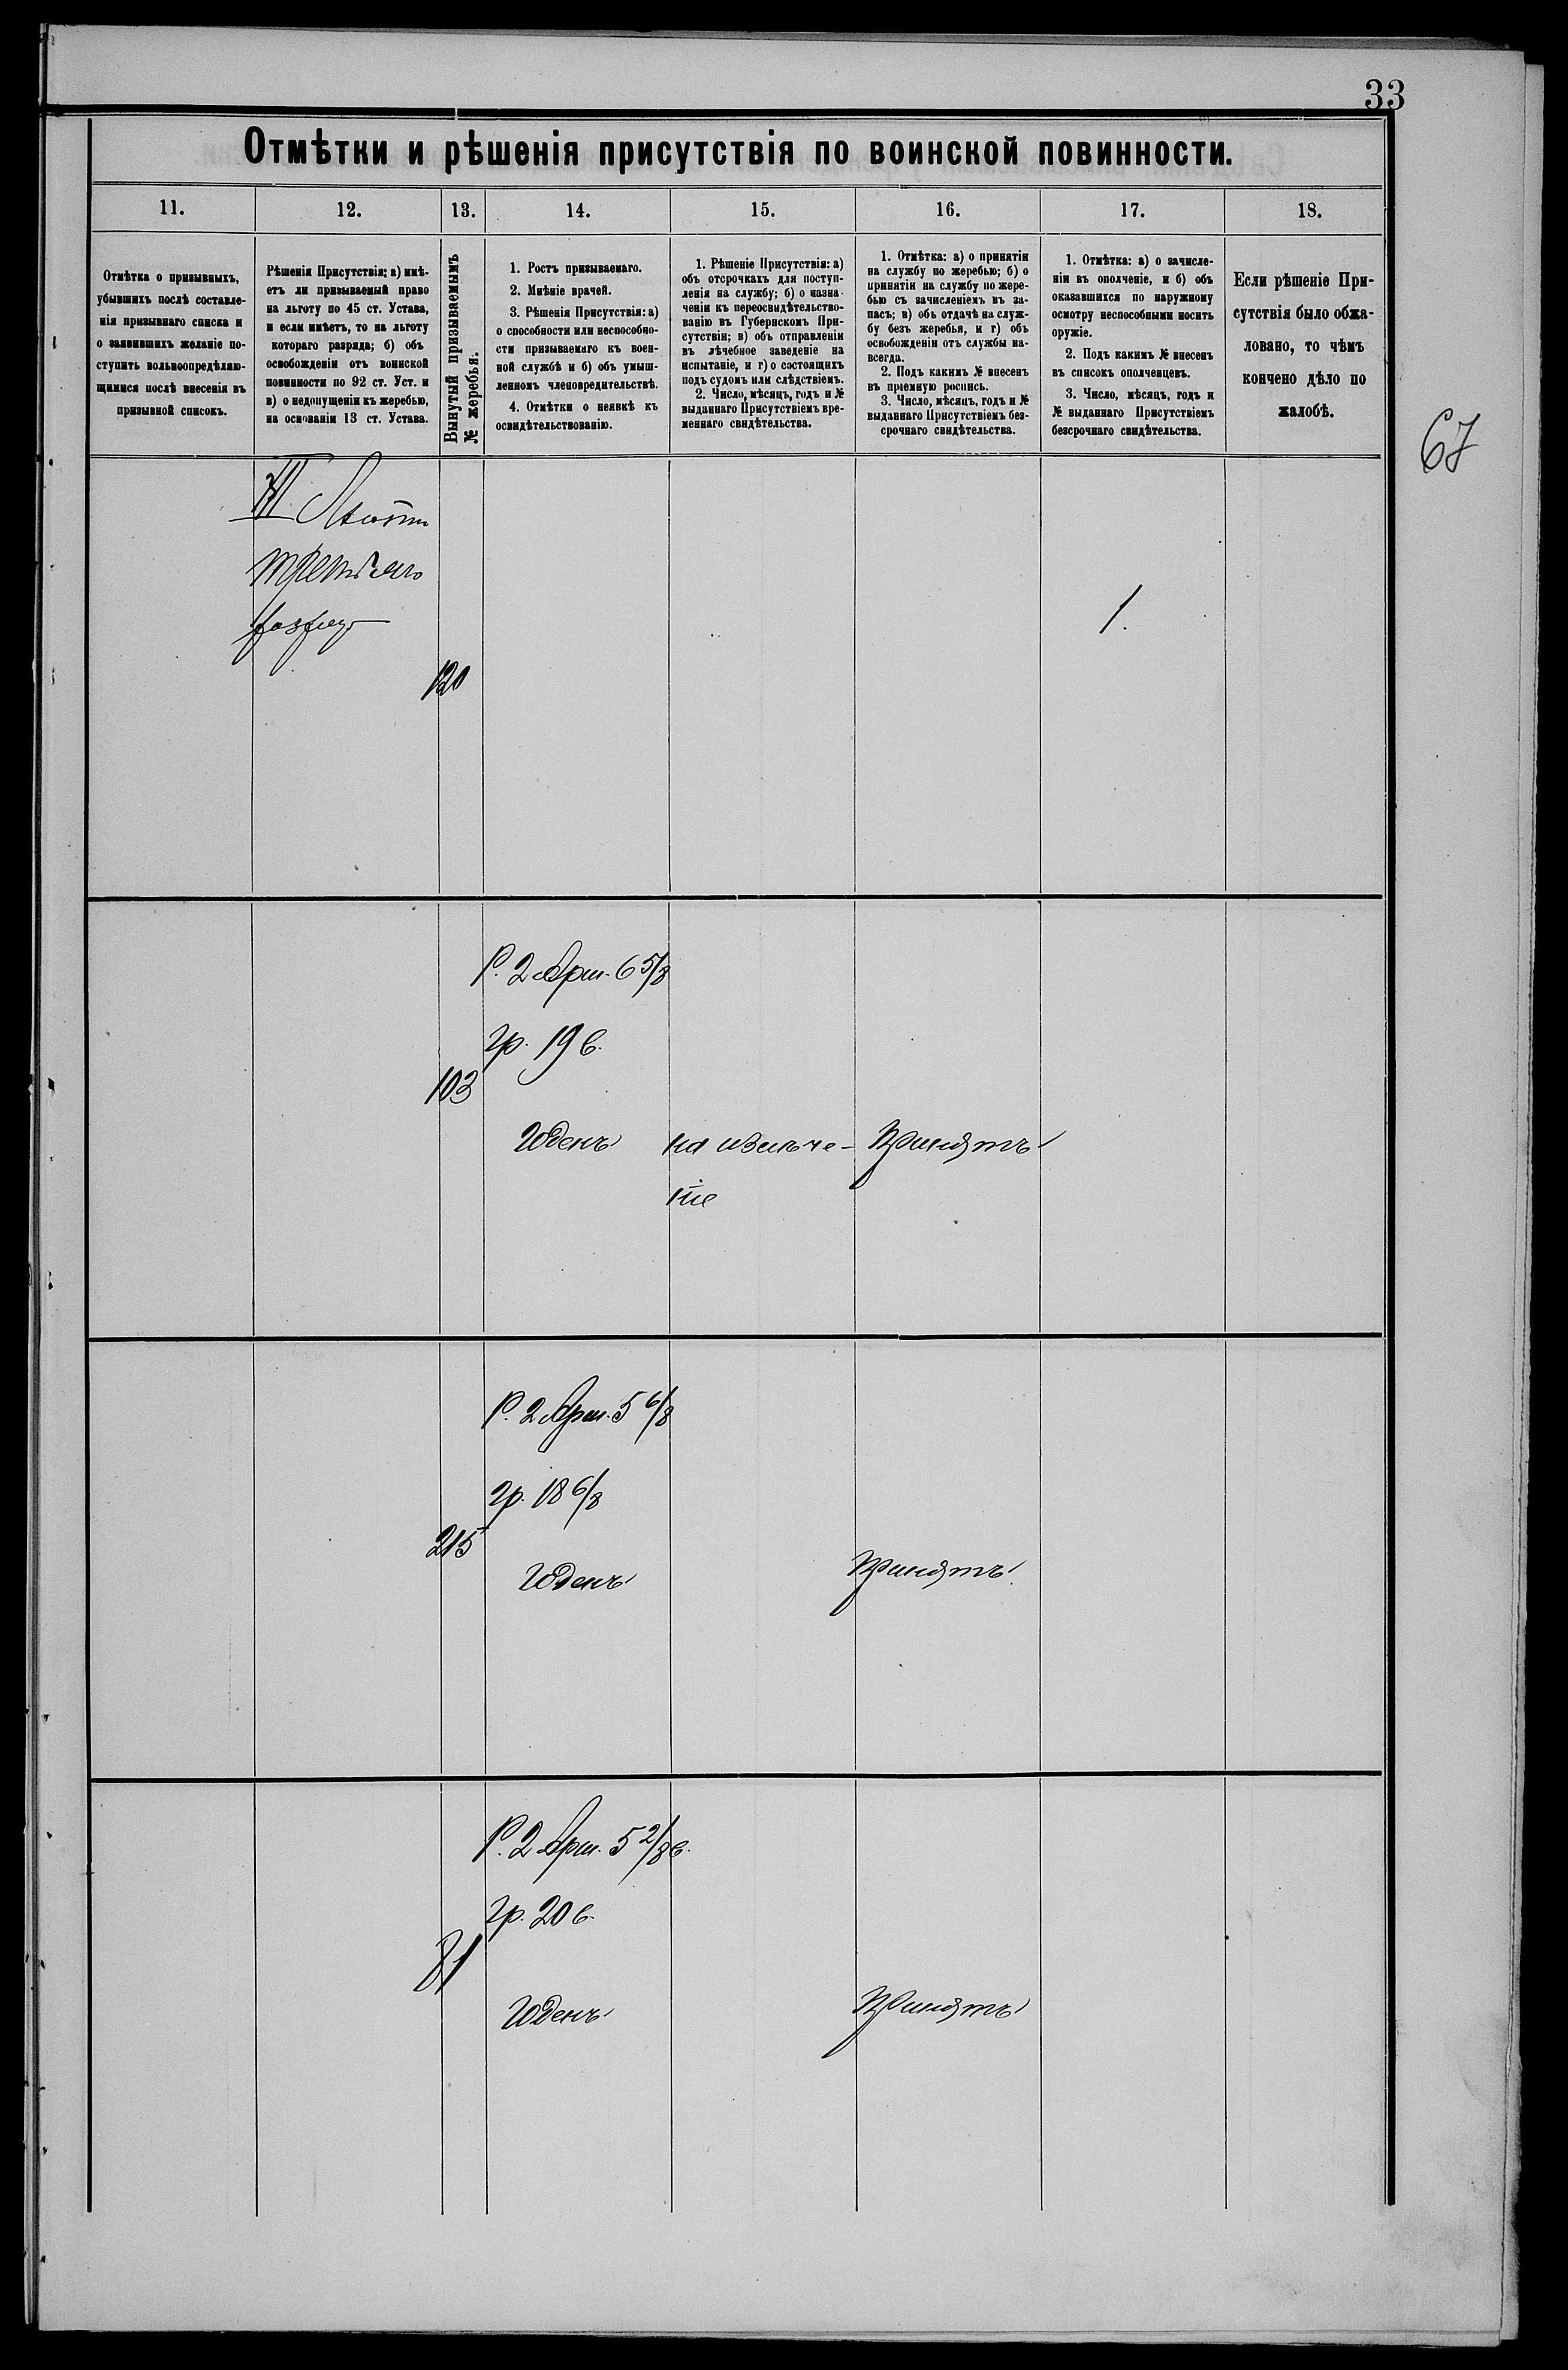 33
Отмѣтки и рѣшенія присутствія по воинской повинности.
11.
12.
13.
14.
15.
16.
17.
18.
Отмѣтка о призывныхъ,
убывшихъ послѣ составле-
нія призывнаго списка и
о заявившихъ желаніе по-
ступить вольноопредѣляю-
щимися послѣ внесенія въ
призывной списокъ.
Рѣшенія Присутствія: а) имѣ-
етъ ли призываемый право
на льготу по 45 ст. Устава,
и если имѣетъ, то на льготу
котораго разряда; б) объ
освобожденіи отъ воинской
повинности по 92 ст. Уст. и
в) о недопущеніи къ жеребью,
на основаніи 13 ст. Устава.
Вынутый призываемымъ
№ жеребья.
1. Ростъ призываемаго.
2. Мнѣніе врачей.
3. Рѣшенія Присутствія: а)
о способности или неспособно-
сти призываемаго къ воен-
ной службѣ и б) объ умыш-
ленномъ членовредительствѣ.
4. Отмѣтки о неявкѣ къ
освидѣтельствованію.
1. Рѣшеніе Присутствія: а)
объ отсрочкахъ для поступ-
ленія на службу; б) о назна-
ченіи къ переосвидѣтельство-
ванію въ Губернскомъ При-
сутствіи; в) объ отправленіи
въ лѣчебное заведеніе на
испытаніе, и г) о состоящихъ
подъ судомъ или слѣдствіемъ.
2. Число, мѣсяцъ, годъ и №
выданнаго Присутствіемъ вре-
меннаго свидѣтельства.
1. Отмѣтка: а) о принятіи
на службу по жеребью; б) о
принятіи на службу по жере-
бью съ зачисленіемъ въ за-
пасъ; в) объ отдачѣ на служ-
бу безъ жеребья, и г) объ
освобожденіи отъ службы на-
всегда.
2. Подъ какимъ № внесенъ
въ пріемную роспись.
3. Число, мѣсяцъ, годъ и №
выданнаго Присутствіемъ без-
срочнаго свидѣтельства.
1. Отмѣтка: а) о зачисле-
ніи въ ополченіе, и б) объ
оказавшихся по наружному
осмотру неспособными носить
оружіе.
2. Подъ какимъ № внесенъ
въ списокъ ополченцевъ.
3. Число, мѣсяцъ, годъ и
№ выданнаго Присутствіемъ
безсрочнаго свидѣтельства.
Если рѣшеніе При-
сутствія было обжа-
ловано, то чѣмъ
кончено дѣло по
жалобѣ.
67
III Льготы
третьяго
разряд
1.
120
Р. 2 Арш. 6 5/8
гр. 19 в.
103
Годенъ
на излѣче-
ніе
Принятъ
Р. 2 Арш. 5 6/8
гр. 18 6/8
215
Годенъ
Принятъ
Р. 2 Арш. 5 2/8 в.
гр. 20 в.
81
Годенъ
Принятъ